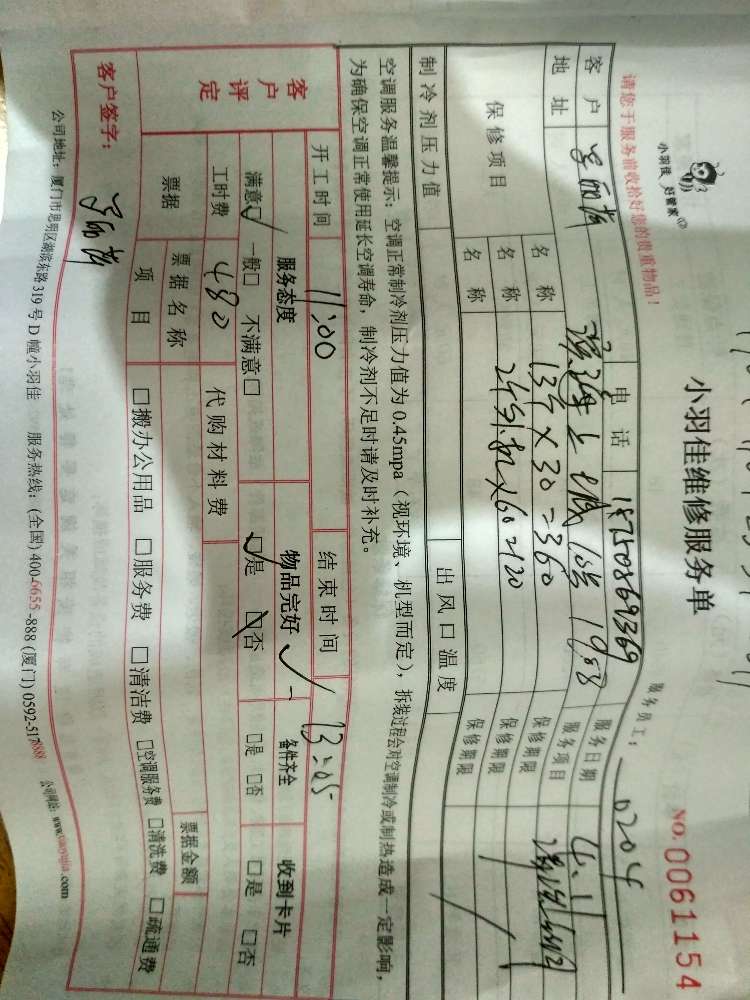 小羽佳 好管家
小羽佳维修服务单
NO. 0061154
请您于服务前收拾好您的贵重物品!
服务员工: 0204
客户 电话 18750869369 服务日期 4.1
地址 19 服务项目
保修项目 名称 13个×30=360 保修期限
名称 2个外机×60=120 保修期限
名称 保修期限
制冷剂压力值 出风口温度
空调服务温馨提示:空调正常制冷剂压力值为0.45mpa(视环境、机型而定),拆装过程会对空调制冷或制热造成一定影响,
为确保空调正常使用延长空调寿命,制冷剂不足时请及时补充。
客户评定
开工时间 11:00 结束时间 13:05
服务态度 物品完好 备件齐全 收到卡片
满意□ 一般□ 不满意□ □是 □否 □是 □否 □是 □否
工时费 480 代购材料费
票据 票据名称 票据金额
项目 □搬办公用品 □服务费 □清洁费 □空调服务费 □清洗费 □疏通费
客户签字:
公司地址:厦门市思明区湖滨东路319号D幢小羽佳 服务热线:(全国)400-6655-888(厦门)0592-5178888 公司网址:www.xiaoyujia.com